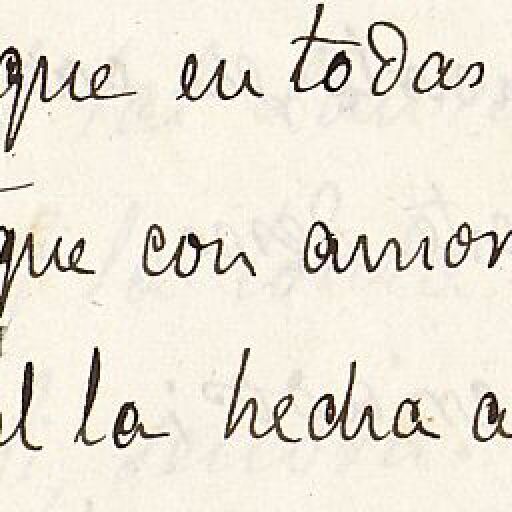 que en todas
que con amor
l la hecha a